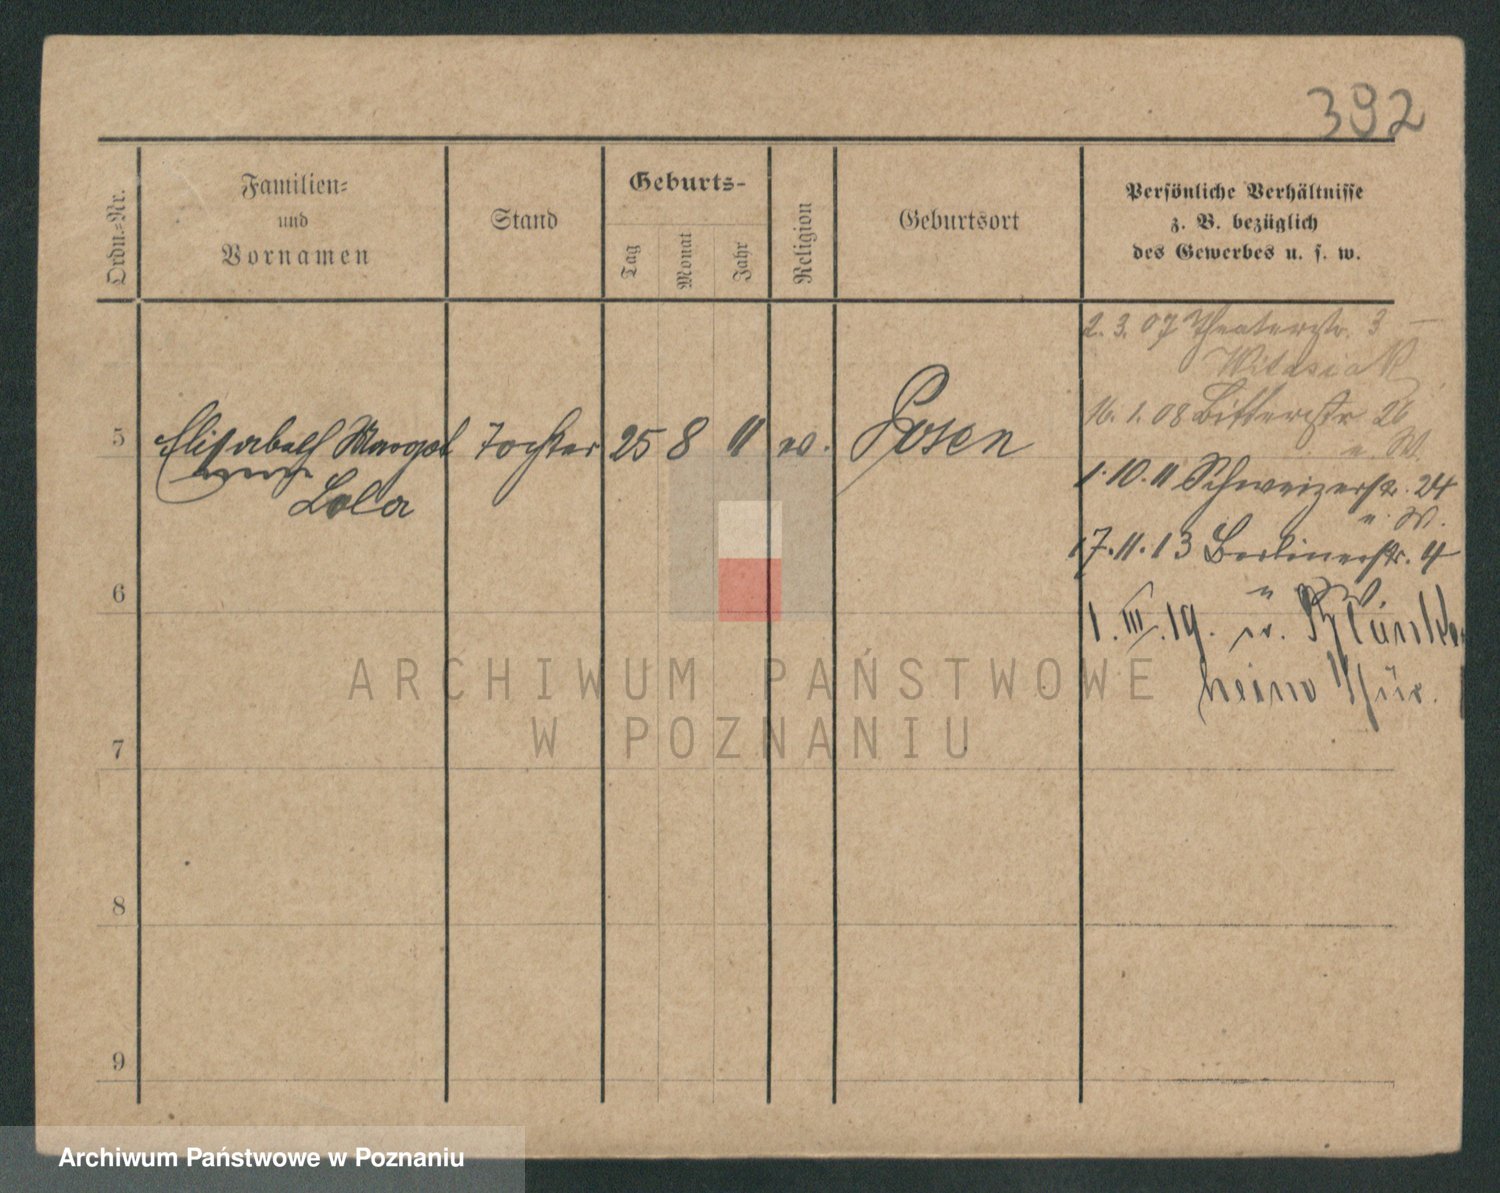 392
Ordn.-Nr.
Familien-
und
Vornamen
Stand
Geburts-
Tag
Monat
Jahr
Religion
Geburtsort
Persönliche Verhältnisse
z. B. bezüglich
des Gewerbes u. s. w.
2. 3. 07 Theaterstr. 3 –
Witasiak
16. 1. 08 Ritterstr 26
u. W.
5 Elisabeth Margot Tochter 25 8 11 ev. Posen
Lola
1. 10. 11 Schweizerstr. 24
u. W.
17. 11. 13 Berlinerstr. 4
u W
6
1. III. 19. n. Blanken
hein Thür.
7
8
9
ARCHIWUM PAŃSTWOWE
W POZNANIU
Archiwum Państwowe w Poznaniu